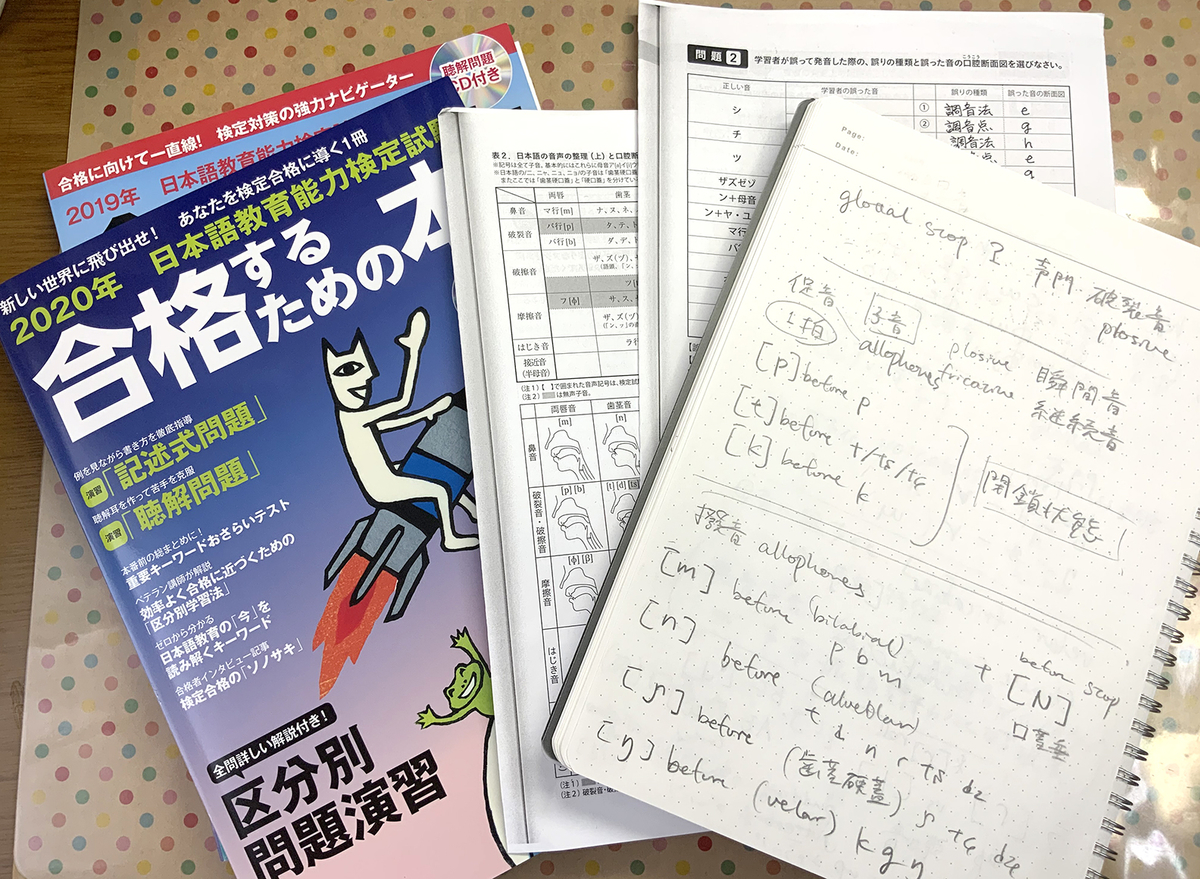 合格に向けて一直線! 検定対策の強力ナビゲーター
聴解問題
CD付き
2019年 日本語教育能力検定試
新しい世界に飛び出せ! あなたを検定合格に導く1冊
2020年 日本語教育能力検定試
合格する
ための本
例を見ながら書き方を徹底指導
演習「記述式問題」
聴解耳を作って苦手を克服
演習「聴解問題」
本番前の総まとめに!
重要キーワードおさらいテスト
ベテラン講師が解説
効率よく合格に近づくための
「区分別学習法」
ゼロから分かる
日本語教育の「今」を
読み解くキーワード
合格者インタビュー記事
検定合格の「ソノサキ」
全問詳しい解説付き!
区分別
問題演習
表2. 日本語の音声の整理(上)と口腔断
両唇 歯茎
鼻音 マ行[m] ナ、ス、ネ、
破裂音 パ行[p] タ、テ、ト
バ行[b] ダ、デ、ド
破擦音 ザ、ズ(ヅ)、
ツ
摩擦音 フ[ɸ] サ、ス、セ
ザ、ズ(ヅ)
はじき音 ラ行
接近音
(半母音)
(注2) は無声子音。
両唇音 歯茎音
鼻音 [m] [n]
破裂音・破擦音 [p] [b] [t] [d] [ts]
摩擦音 [ɸ] [β]
はじき音
(注1)
(注2) 破裂音・破
問題2 学習者が誤って発音した際の、誤りの種類と誤った音の口腔断面図を選びなさい。
正しい音 学習者の誤った音 誤りの種類 誤った音の断面図
シ ① 調音法 e
チ ② 調音点 g
ツ 調音法 h
点 e
ザズゼゾ g
ン+母音
ン+ヤ・ユ
マ行
Page:
Date:
glottal stop ʔ 声門・破裂音
plosive
促音 子音 plosive 瞬間音
1拍 allophones fricative 継続音
[p] before p
[t] before t/ts/tɕ
[k] before k
閉鎖状態
撥音 allophones
[m] before (bilabial)
p b m
[n] before (alveolar)
t d n r ts dz
[ɲ] before (歯茎硬蓋) ɲ tɕ dʑ
[ŋ] before (velar) k g ŋ
+ before stop
[N]
口蓋垂